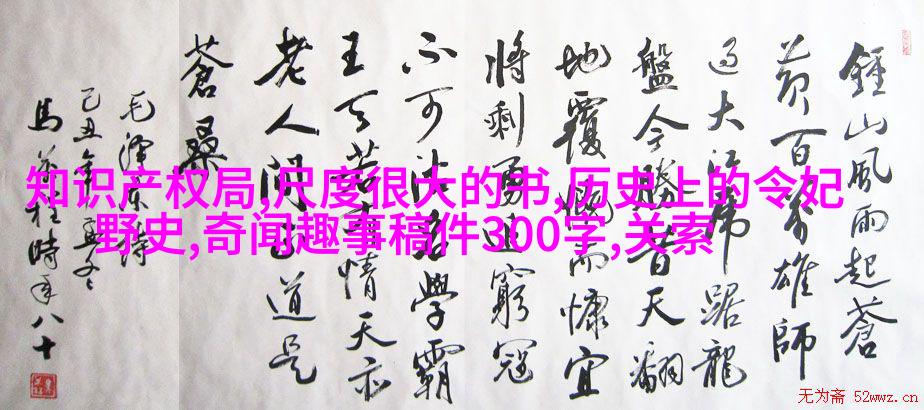 知识产权局,尺度很大的书,历史上的令妃
野史,奇闻趣事稿件300字,关索
鍾山風雨起蒼
黄百萬雄師
過大江虎踞龍
盤今勝昔天翻
地覆慨而慷宜
將剩勇追窮寇
不可沽名學霸
王天若有情天亦
老人間正道是
蒼桑
毛澤東詩
己丑年
馬 時年八十
无为斋 52wwz.cn